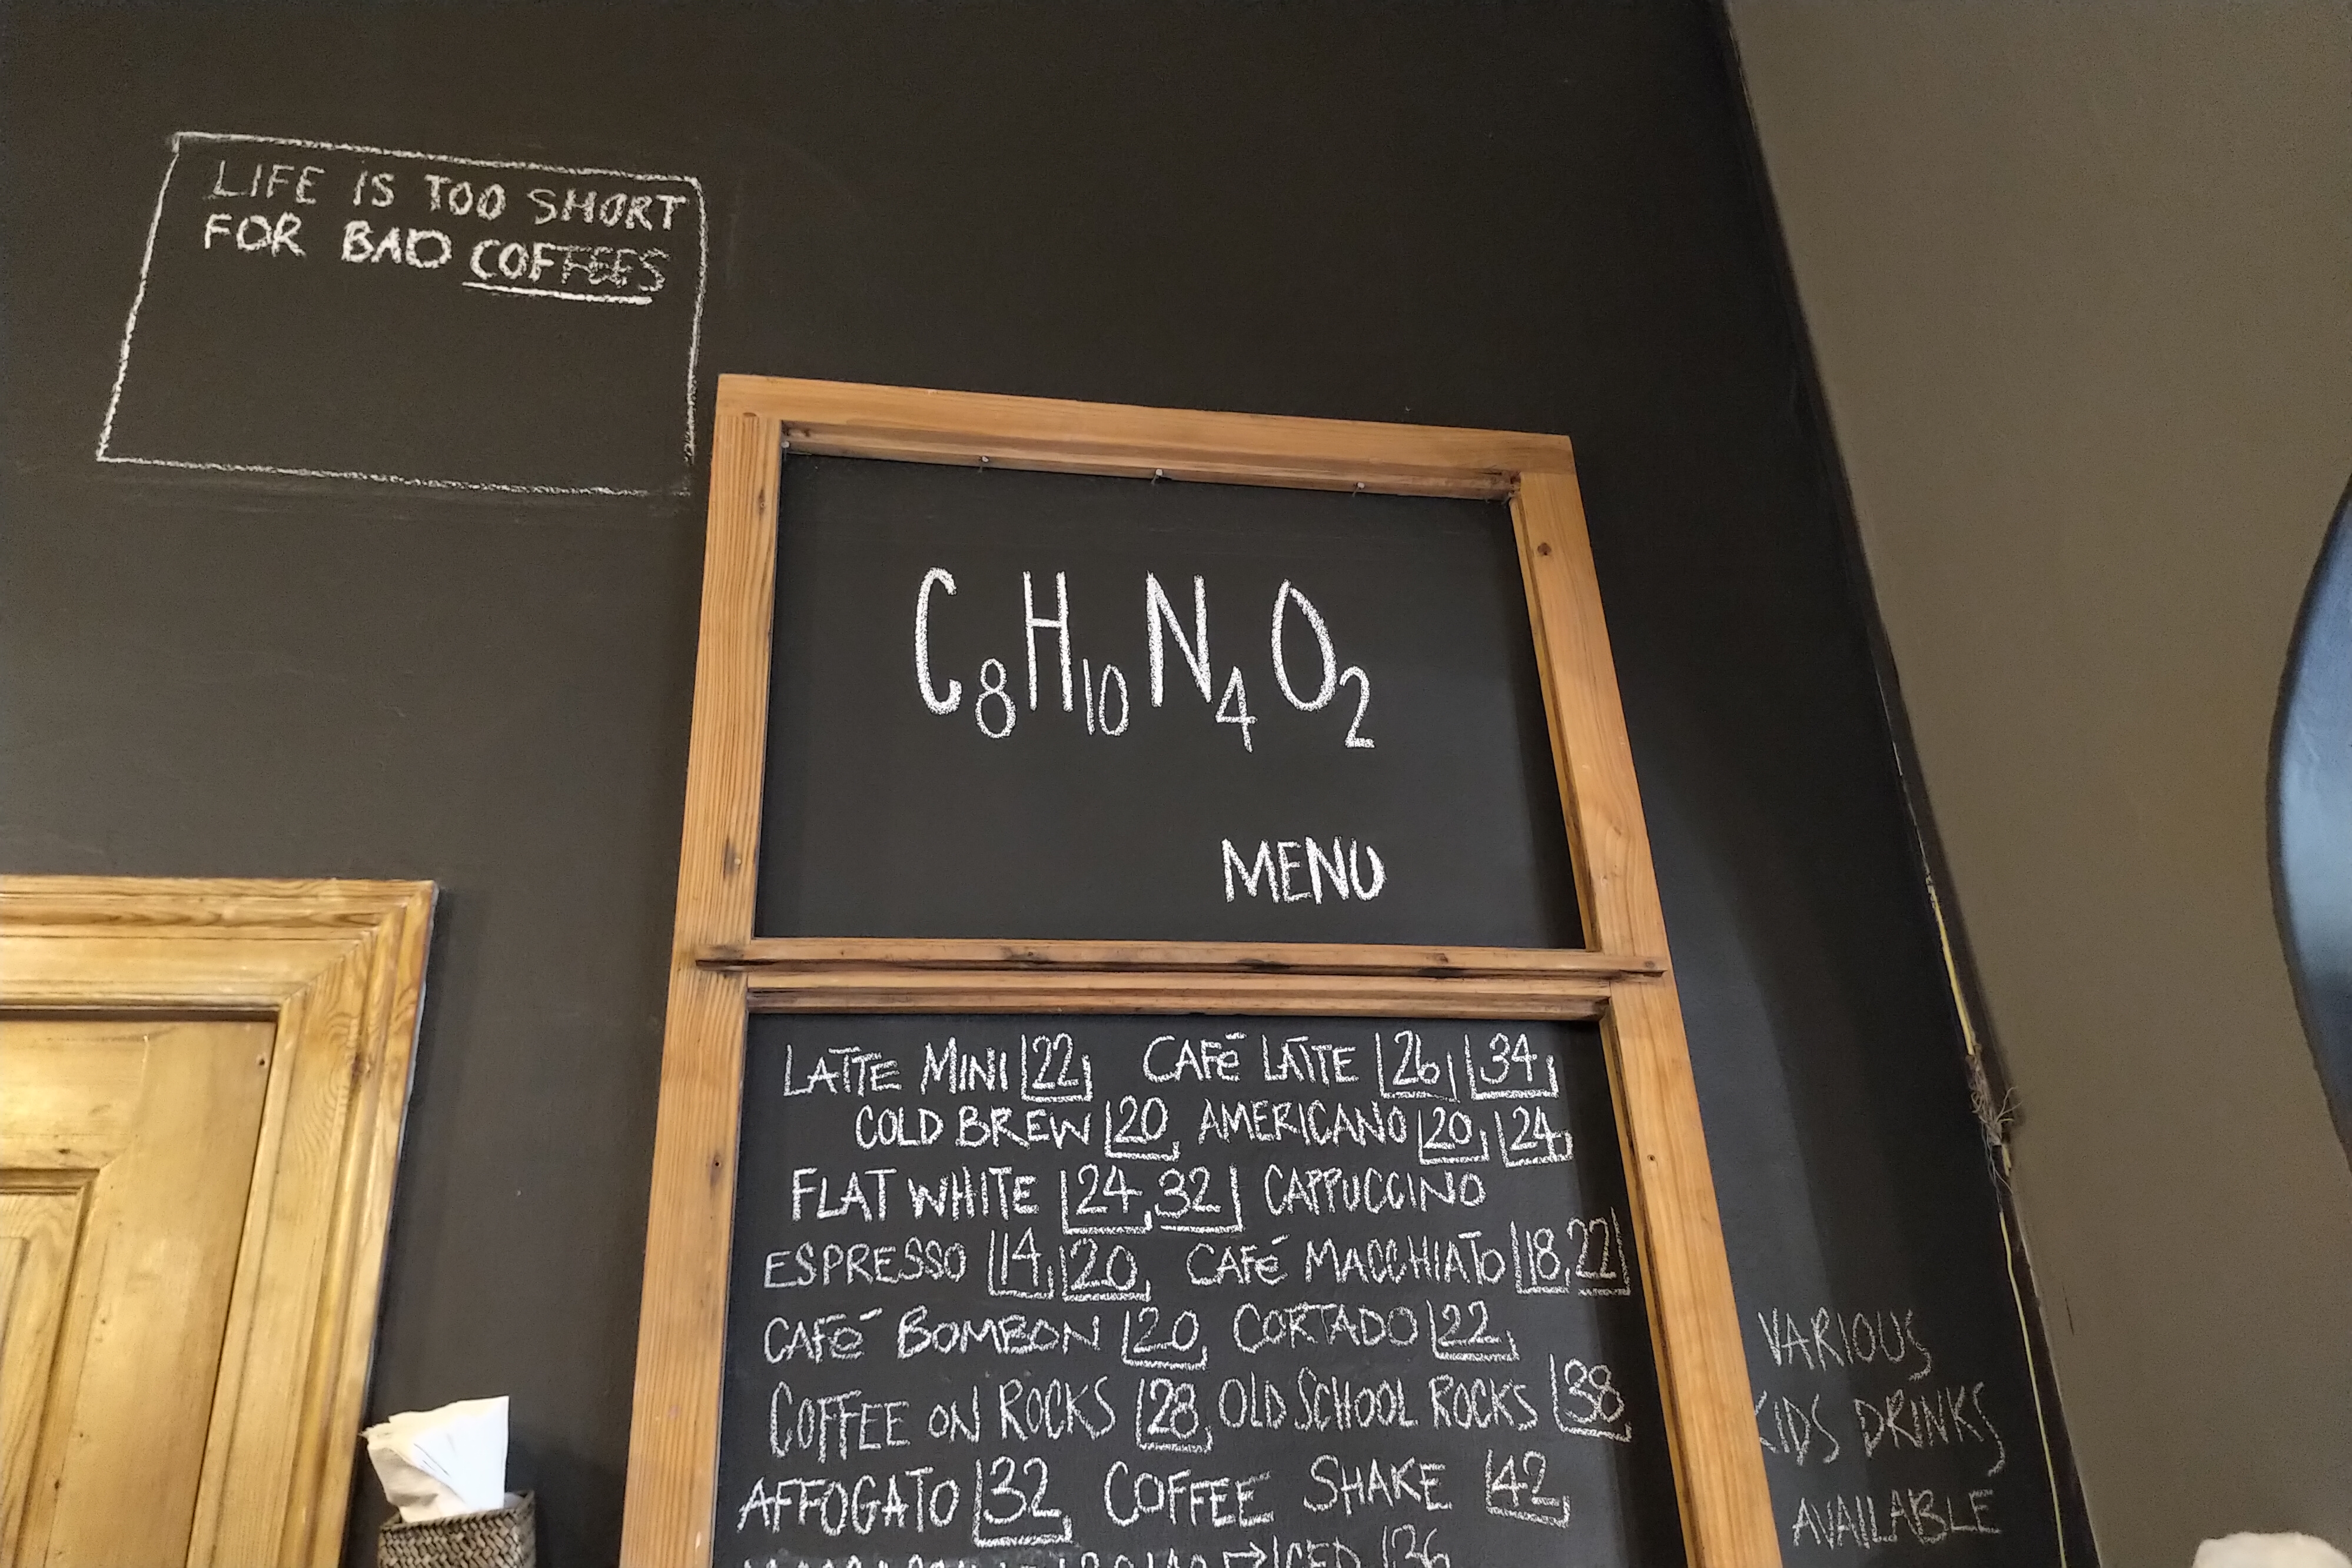 LIFE IS TOO SHORT
FOR BAD COFFEES
C8H10N4O2
MENU
LATTE MINI 22 CAFÉ LATTE 26 34
COLD BREW 20 AMERICANO 20 24
FLAT WHITE 24 32 CAPPUCCINO
ESPRESSO 14 20 CAFÉ MACCHIATO 18 22
CAFÉ BOMBON 20 CORTADO 22
COFFEE ON ROCKS 28 OLD SCHOOL ROCKS 38
AFFOGATO 32 COFFEE SHAKE 42
ICED 36
VARIOUS
KIDS DRINKS
AVAILABLE